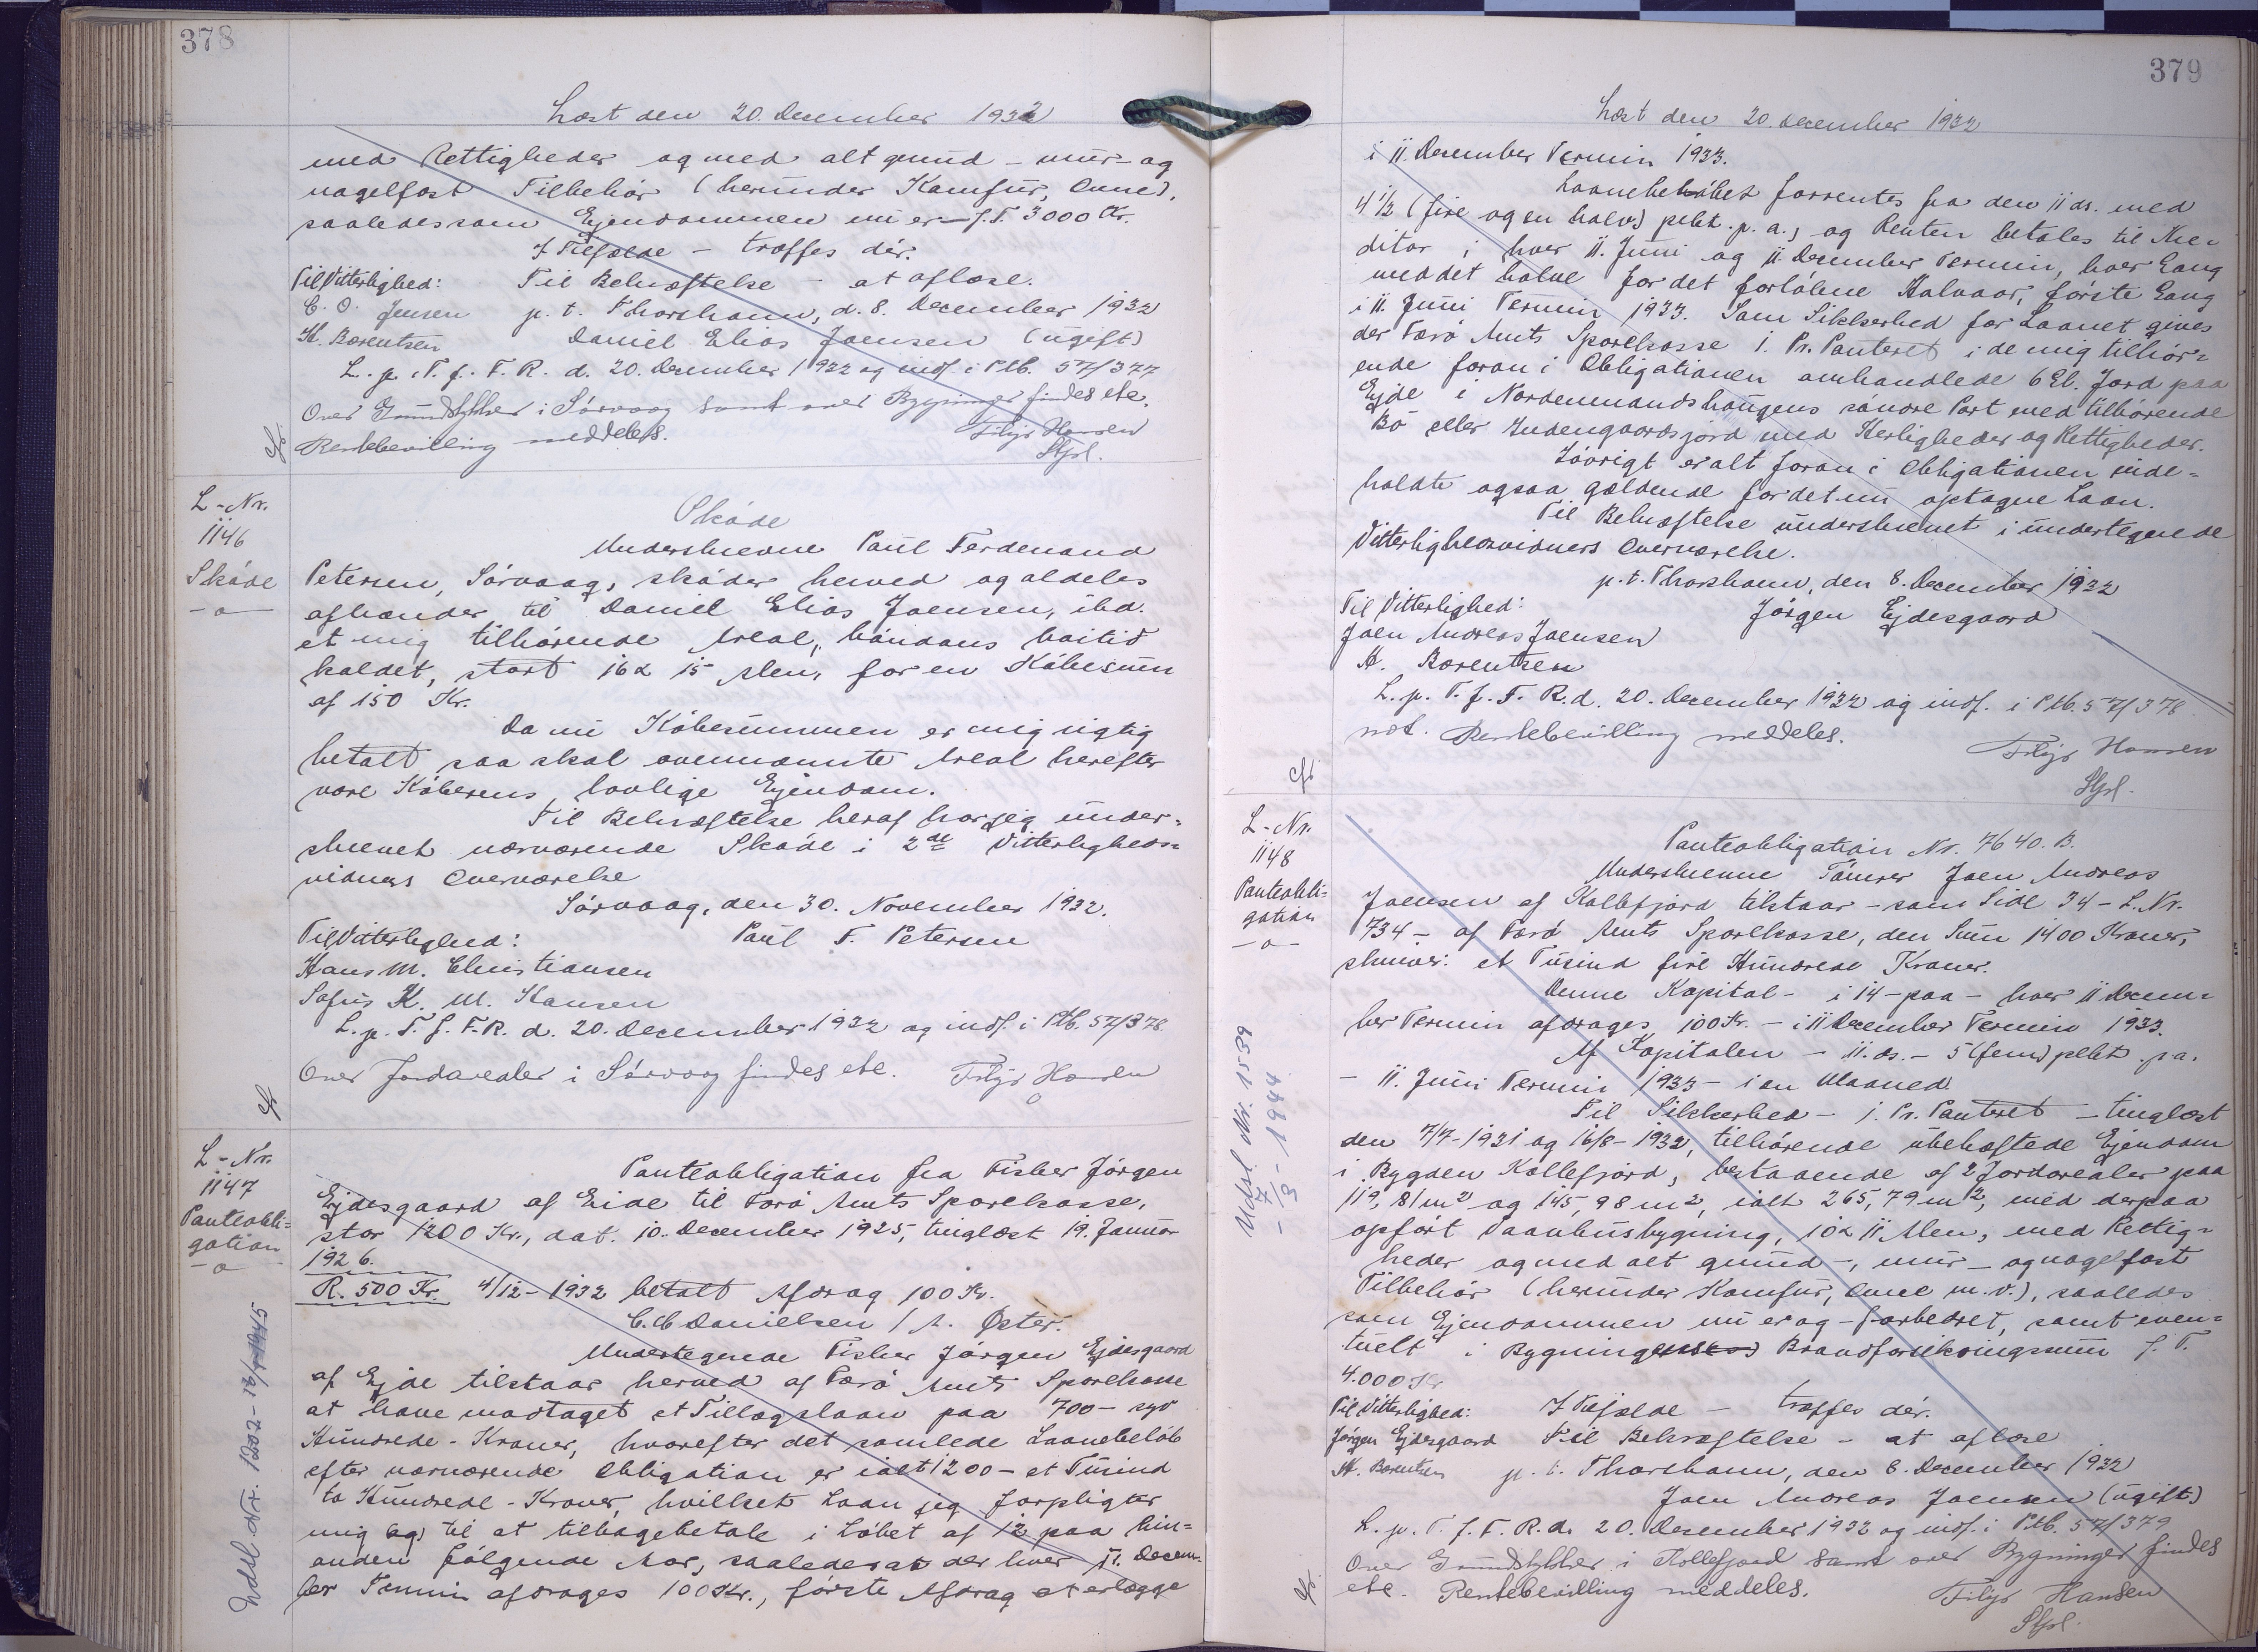 378
Læst den 20. December 1932
med Rettigheder og med alt grund- mur- og
nagelfast Tilbehör (herunder Komfur, Ovne),
saaledes som Ejendommen nu er - f. T. 3000 Kr.
I Tilfælde - træffes dér.
Til Vitterlighed: Til Bekræftelse - at aflæse.
C. O. Jensen p. t. Thorshavn, d. 8. December 1932
H. Bærentsen Daniel Elias Joensen (ugift)
L. p. T. f. F. R. d. 20. December 1932 og indf. i Ptb. 57/377
Over Grundstykker i Sörvaag samt over Bygninger findes etc.
Rentebevilling meddeles. Filip Hansen
Stfsl.
L-Nr.
1146
Sköde
-o-
Sköde
Underskrevne Paul Ferdenand
Petersen, Sörvaag, sköder herved og aldeles
afhænder til Daniel Elias Joensen, ibd.
et mig tilhörende Areal, kaldet, stort 16 x 15 Alen, for en Köbesum
af 150 Kr.
Da nu Köbesummen er mig rigtig
betalt saa skal ovennævnte Areal herefter
være Köberens lovlige Ejendom.
Til Bekræftelse heraf har jeg under=
skrevet nærværende Sköde i 2de Vitterligheds=
vidners Overværelse
Sörvaag, den 30. November 1932.
Til Vitterlighed: Paul F. Petersen
Hans M. Christiansen
Sofus K. M. Hansen
L. p. T. f. F. R. d. 20. December 1932 og indf. i Ptb. 57/378
Over Jordarealer i Sörvaag findes etc. Filip Hansen
L-Nr.
1147
Panteobli=
gation
-o-
Panteobligation fra Fisker Jörgen
Ejdesgaard af Eide til Færö Amts Sparekasse,
stor 1200 Kr., dat. 10. December 1925, tinglæst 19. Januar
1926.
R. 500 Kr. 4/12-1932 betalt Afdrag 100 Kr.
C. Danielsen / A. Öster.
Undertegnede Fisker Jörgen Ejdesgaard
af Ejde tilstaar herved af Færö Amts Sparekasse
at have modtaget et Tillægslaan paa 700 - syv
Hundrede - Kroner, hvorefter det samlede Laanebelöb
efter nærværende Obligation er ialt 1200 - et Tusind
to Hundrede - Kroner, hvilket Laan jeg forpligter
mig (og) til at tilbagebetale i Löbet af 12 paa hin=
anden fölgende Aar, saaledes at der hver 11. Decem=
ber Termin afdrages 100 Kr., förste Afdrag at erlægge
379
Læst den 20. December 1932
i 11. December Termin 1933.
Laanebelöbet forrentes fra den 11 ds. med
4 1/2 (fire og en halv) pcbt. p. a., og Renten betales til Kre=
ditor i hver 11. Juni og 11. December Termin, hver Gang
med det halve for det forlöbne Halvaar, förste Gang
i 11. Juni Termin 1933. Som Sikkerhed for Laanet gives
der Færö Amts Sparekasse 1. Pr. Panteret i de mig tilhör=
ende foran i Obligationen omhandlede 6 Gl. Jord paa
Ejde i Nordenmandshaugens söndre Part med tilhörende
Bö eller Indengaardsjord med Herligheder og Rettigheder.
Iövrigt er alt foran i Obligationen inde=
holdte ogsaa gældende for det nu optagne Laan.
Til Bekræftelse underskrevet i undertegnede
Vitterlighedsvidners Overværelse.
p. t. Thorshavn, den 8. December 1932
Til Vitterlighed: Jörgen Ejdesgaard
Joen Andreas Joensen
H. Bærentsen
L. p. T. f. F. R. d. 20. December 1932 og indf. i Ptb. 57/378
not. Rentebevilling meddeles. Filip Hansen
Stfsl.
L-Nr.
1148
Panteobli=
gation
-o-
Panteobligation Nr. 7640. B.
Underskrevne Tömrer Joen Andreas
Joensen af Kollefjord tilstaar - som Side 34 - L. Nr.
734 - af Færö Amts Sparekasse, den Sum 1400 Kroner,
skriver: et Tusind fire Hundrede Kroner.
Denne Kapital - i 14 - paa - hver 11 Decem=
ber Termin afdrages 100 Kr. - i 11 December Termin 1933.
Af Kapitalen - 11. ds. - 5 (fem) pcbt p.a.
- 11. Juni Termin 1933 - i en Maaned.
Til Sikkerhed - 1. Pr. Panteret - tinglæst
den 7/7-1931 og 16/8-1932, tilhörende ubehæftede Ejendom
i Bygden Kollefjord, bestaaende af 2 Jordarealer paa
119,81 m2 og 145,98 m2, ialt 265,79 m2, med derpaa
opfört Vaanhusbygning, 10 x 11 Alen, med Rettig=
heder og med alt grund-, mur- og nagelfast
Tilbehör (herunder Komfur, Ovne m. v.), saaledes
som Ejendommen nu er og - forbedret, samt even=
tuelt i Bygning Brandforsikringssum f. T.
4.000 Kr
Til Vitterlighed: I Tilfælde - træffes dér.
Jörgen Ejdesgaard Til Bekræftelse - at aflæse
H. Bærentsen p. t. Thorshavn, den 8. December 1932
Joen Andreas Joensen (ugift)
L. p. T. f. F. R. d. 20. December 1932 og indf. i Ptb. 57/379
Over Grundstykker i Kollefjord samt over Bygninger findes
etc. Rentebevilling meddeles. Filip Hansen
Stfsl.
Udsl Nr. 1539